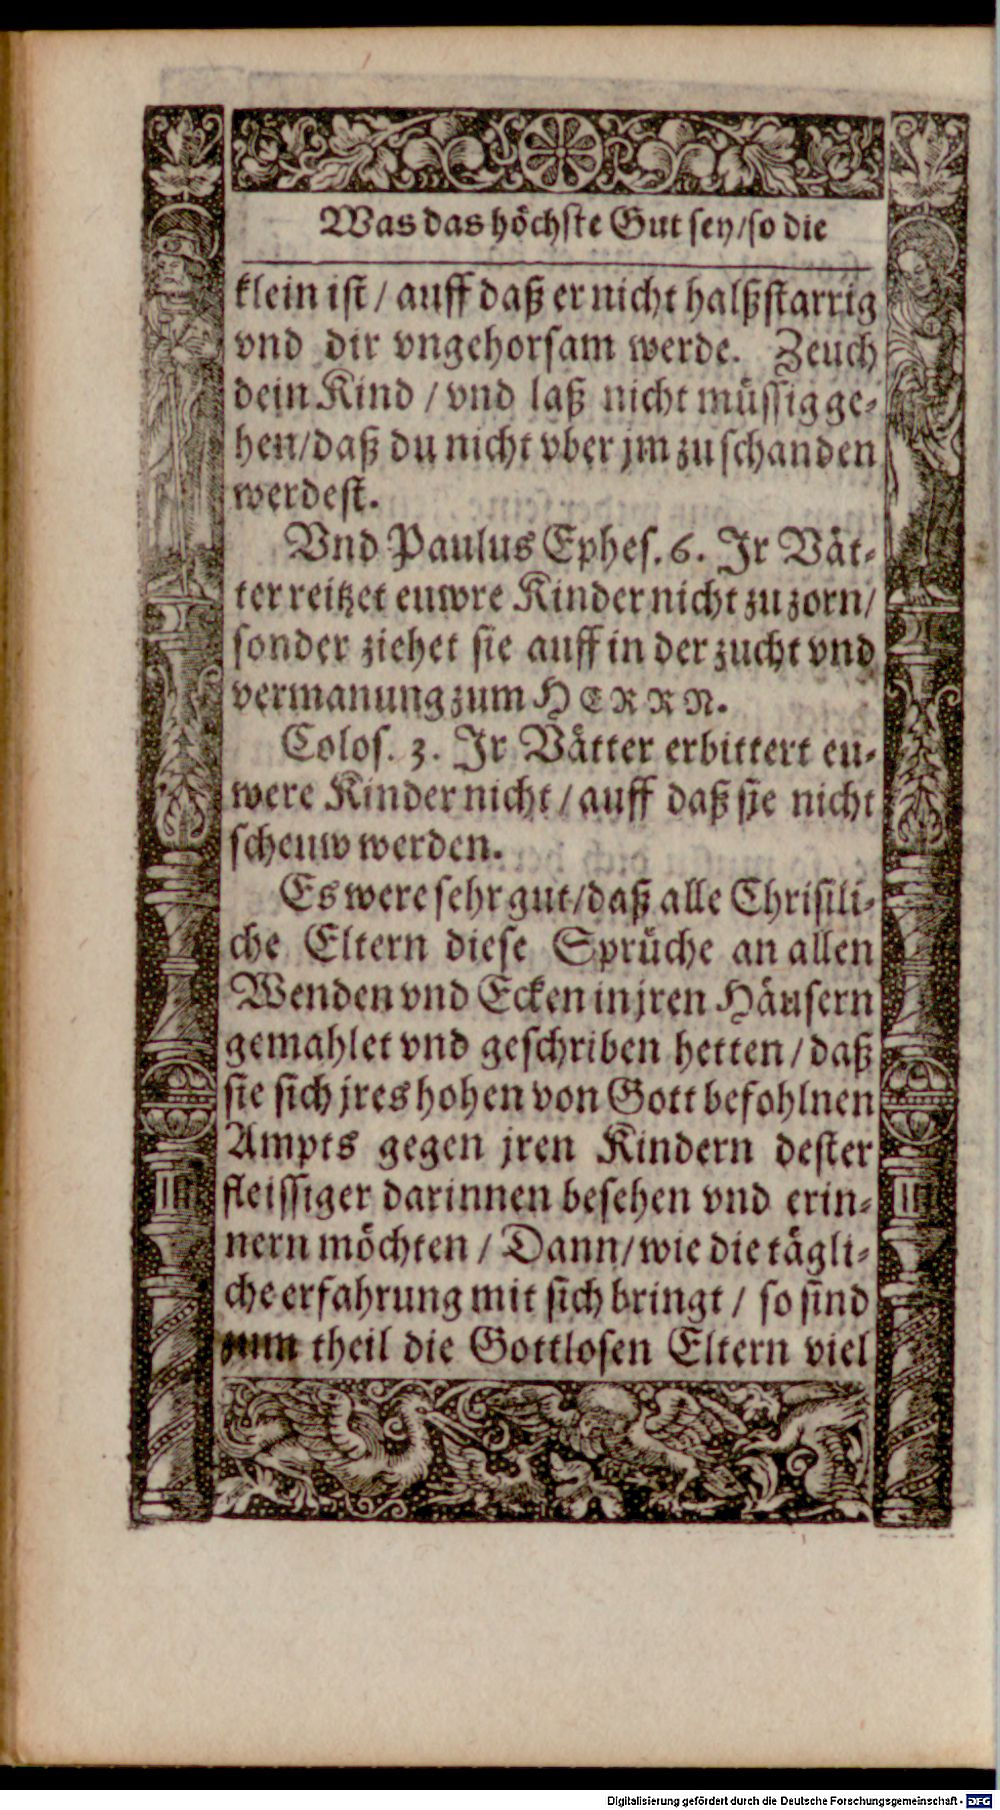 Was das höchste Gut sey/so die
klein ist / auff daß er nicht halßstarrig
vnd dir vngehorsam werde. Zeuch
dein Kind / vnd laß nicht müssig ge-
hen/daß du nicht vber jm zu schanden
werdest.
Vnd Paulus Ephes. 6. Jr Vät-
ter reitzet euwre Kinder nicht zu zorn/
sonder ziehet sie auff in der zucht vnd
vermanung zum HERRN.
Colos. 3. Jr Vätter erbittert eu-
were Kinder nicht / auff daß sie nicht
scheuw werden.
Es were sehr gut/daß alle Christli-
che Eltern diese Sprüche an allen
Wenden vnd Ecken in jren Häusern
gemahlet vnd geschriben hetten / daß
sie sich jres hohen von Gott befohlnen
Ampts gegen jren Kindern dester
fleissiger darinnen besehen vnd erin-
nern möchten / Dann/wie die tägli-
che erfahrung mit sich bringt / so sind
zum theil die Gottlosen Eltern viel
Digitalisierung gefördert durch die Deutsche Forschungsgemeinschaft - DFG